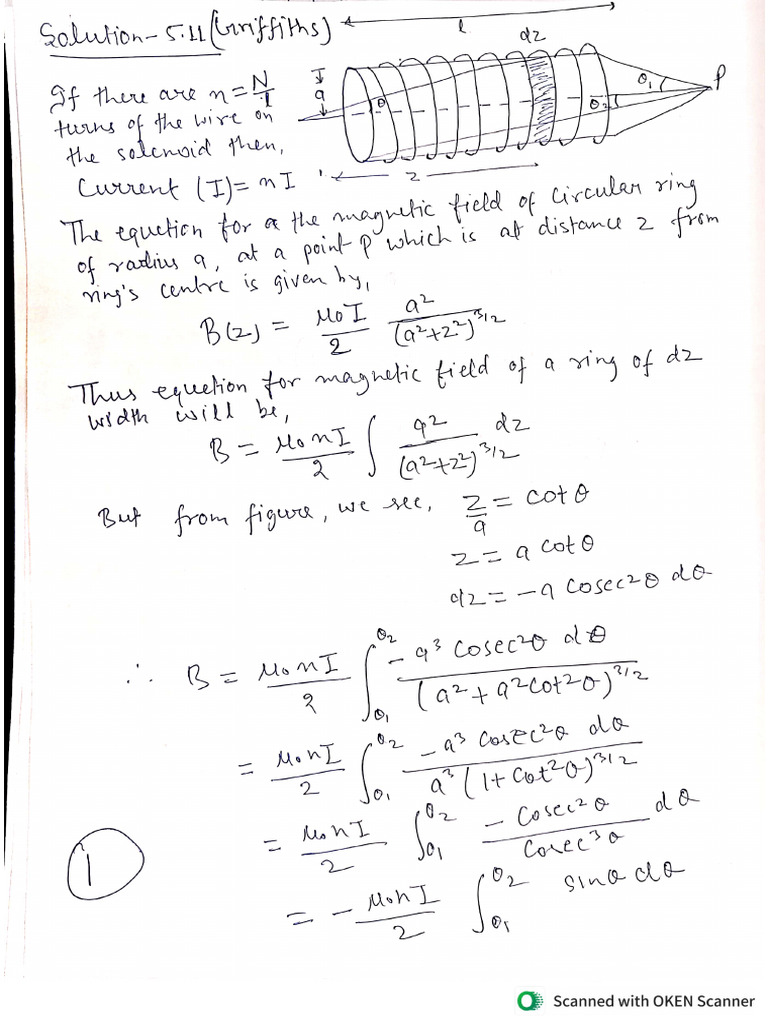 Solution-5.11 (Griffiths)
If there are n = N/l
turns of the wire on
the solenoid then,
Current (I) = nI
l
dz
a
θ
θ₁
θ₂
P
z
The equetion for a the magnetic field of circular ring
of radius a, at a point P which is at distance z from
ring's centre is given by,
B(z) = μ₀I/2 a²/(a²+z²)^3/2
Thus equetion for magnetic field of a ring of dz
width will be,
B = μ₀nI/2 ∫ a²/(a²+z²)^3/2 dz
But from figure, we see, z/a = cotθ
z = a cotθ
dz = -a cosec²θ dθ
∴ B = μ₀nI/2 ∫_θ₁^θ₂ -a³ cosec²θ dθ/(a²+a²cot²θ)^3/2
= μ₀nI/2 ∫_θ₁^θ₂ -a³ cosec²θ dθ/a³(1+cot²θ)^3/2
= μ₀nI/2 ∫_θ₁^θ₂ -cosec²θ/cosec³θ dθ
= - μ₀nI/2 ∫_θ₁^θ₂ sinθ dθ
1
Scanned with OKEN Scanner